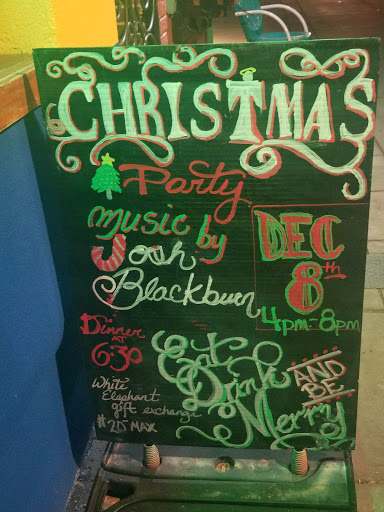 CHRISTMAS
Party
music by
Josh
Blackburn
DEC
8th
4pm-8pm
Dinner
AT
6:30
White
Elephant
gift exchange
$20 MAX
Eat
Drink
AND
BE
Merry